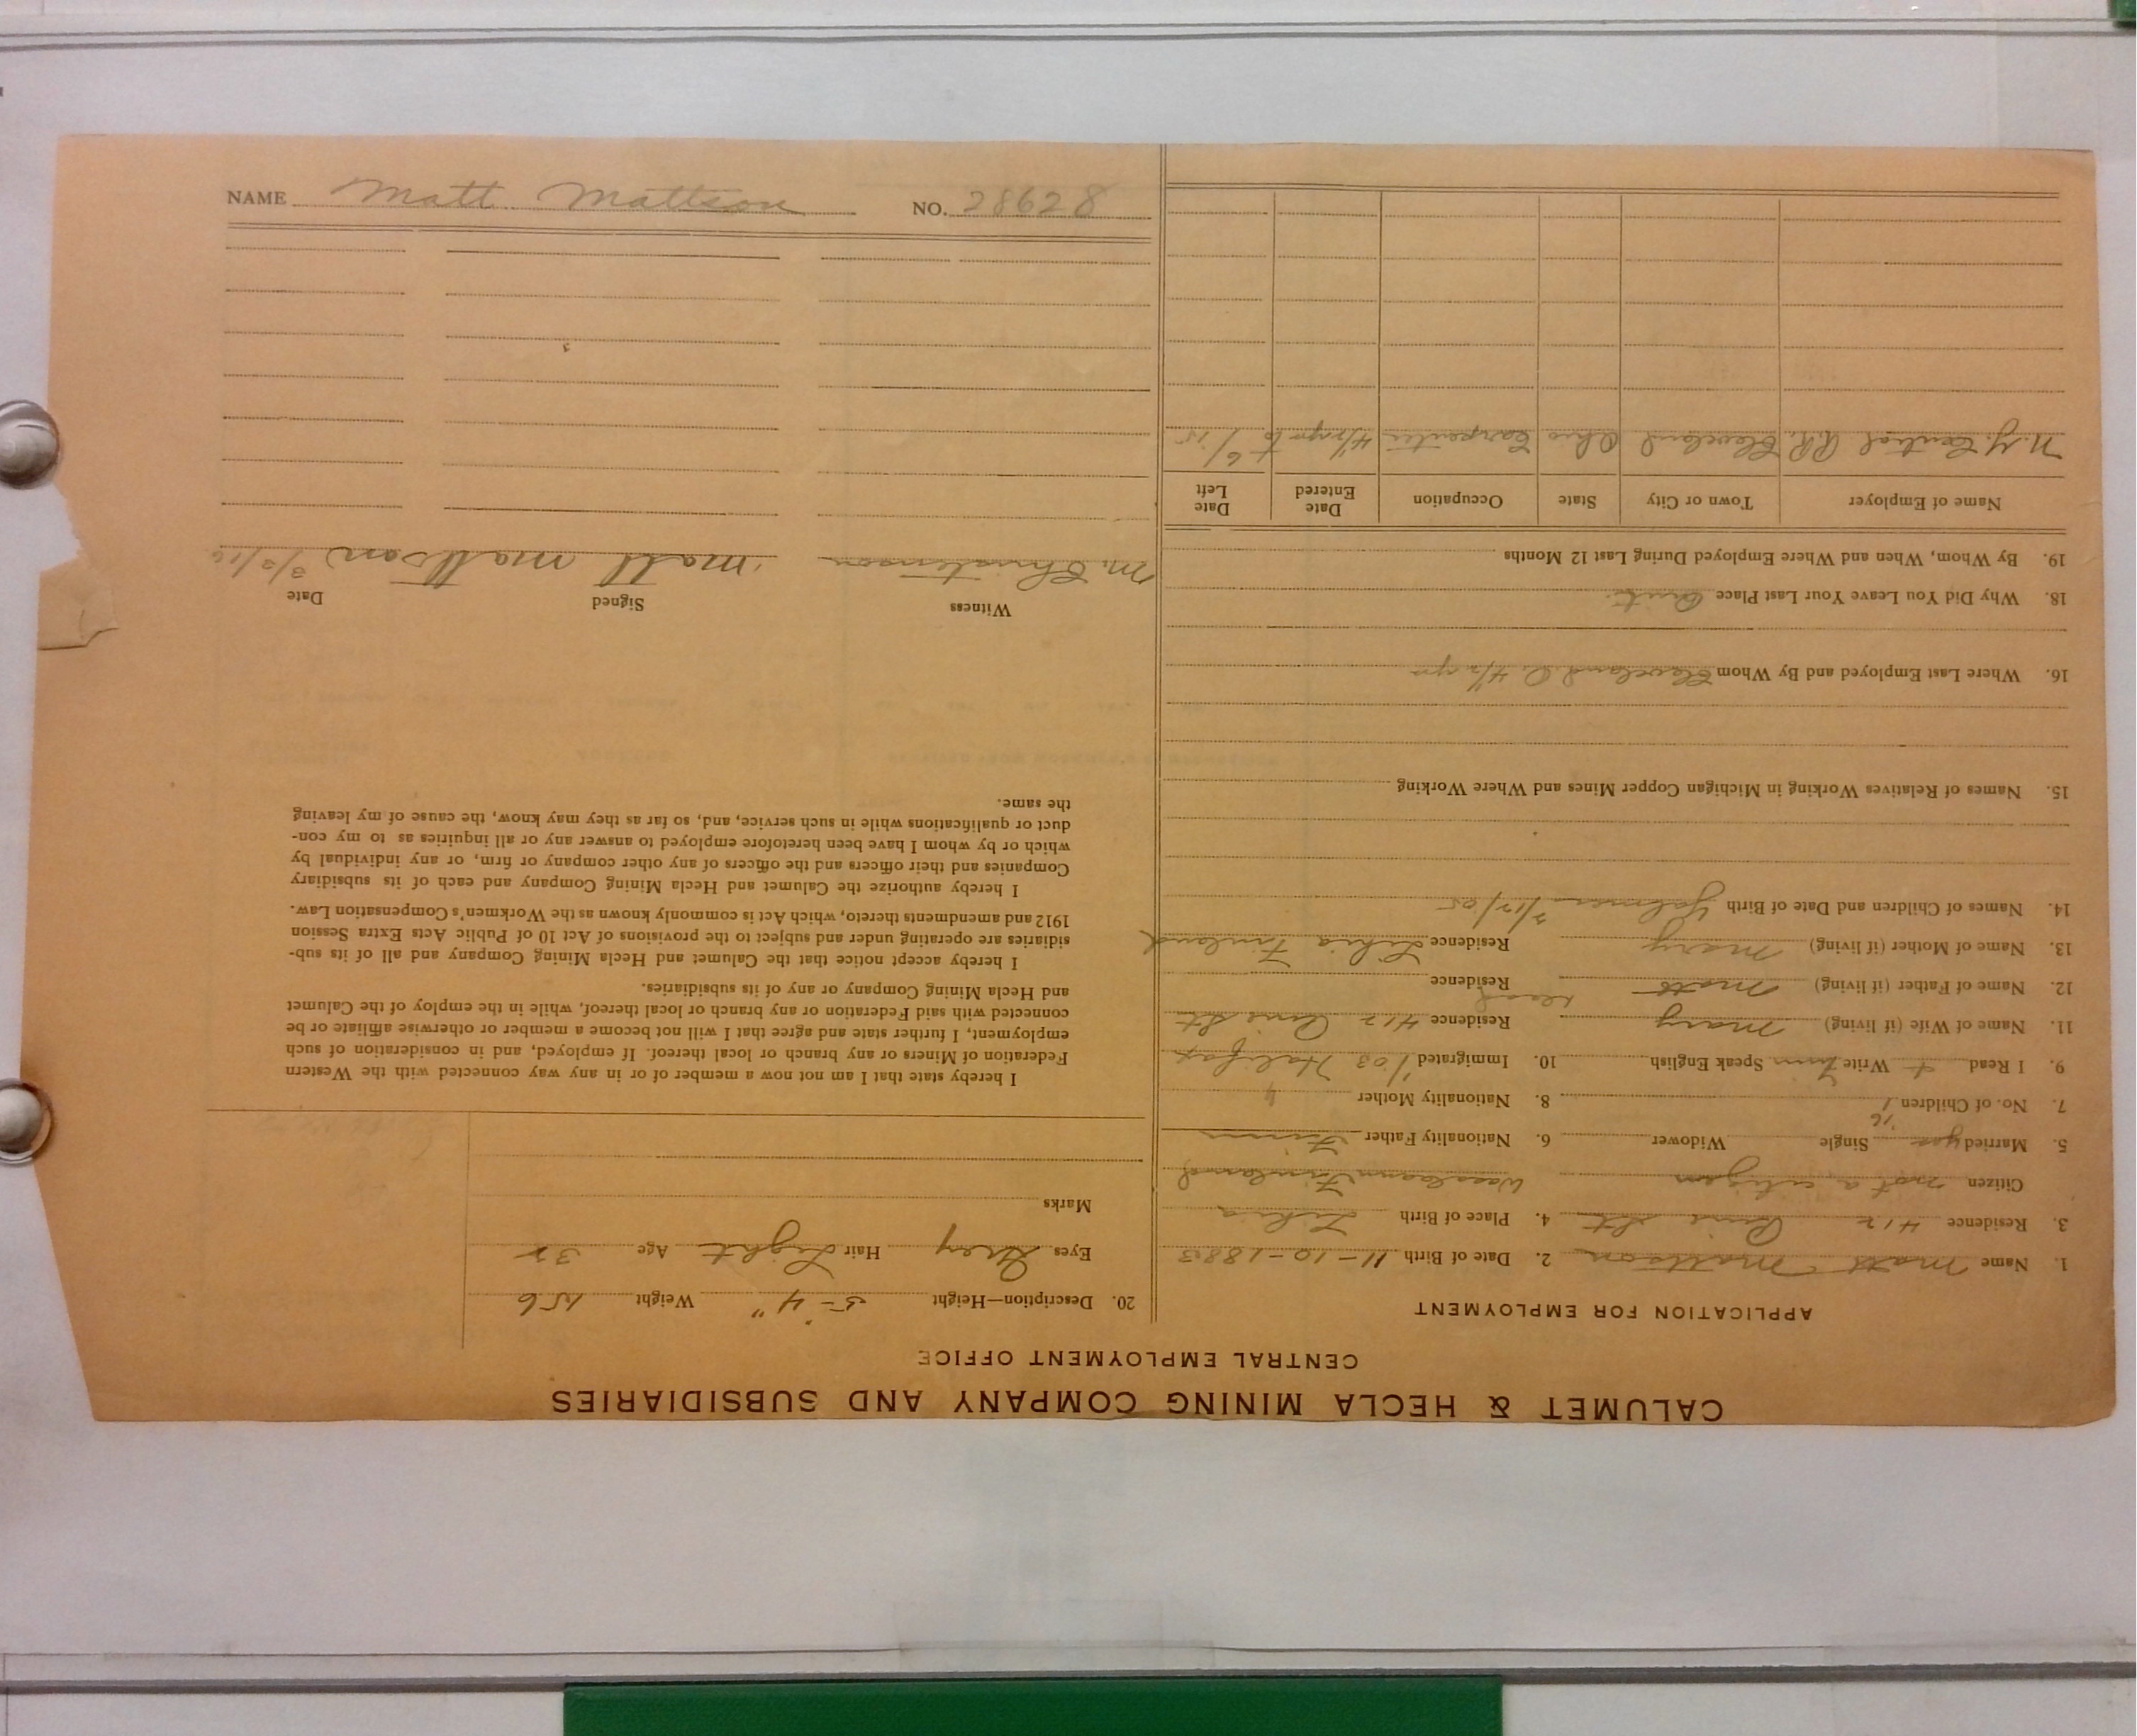 CALUMET & HECLA MINING COMPANY AND SUBSIDIARIES
CENTRAL EMPLOYMENT OFFICE
APPLICATION FOR EMPLOYMENT
1. Name Matt Mattson 2. Date of Birth 11-10-1883
3. Residence 412 Pine St 4. Place of Birth
Citizen not a citizen Finland
5. Married yes Single Widower 6. Nationality Father Finn
7. No. of Children 1 8. Nationality Mother "
9. I Read + Write Finn Speak English 10. Immigrated 1/03 Halifax
11. Name of Wife (if living) Mary Residence 412 Pine St
12. Name of Father (if living) Matt dead Residence
13. Name of Mother (if living) Mary Residence Finland
14. Names of Children and Date of Birth
15. Names of Relatives Working in Michigan Copper Mines and Where Working
16. Where Last Employed and By Whom Cleveland O. 4½ yrs
18. Why Did You Leave Your Last Place Quit.
19. By Whom, When and Where Employed During Last 12 Months
Name of Employer Town or City State Occupation Date Entered Date Left
N.Y. Central R.R. Cleveland Ohio Carpenter 4½ yrs to 6/15
20. Description—Height 5-4" Weight 156
Eyes Grey Hair Light Age 32
Marks
I hereby state that I am not now a member of or in any way connected with the Western
Federation of Miners or any branch or local thereof. If employed, and in consideration of such
employment, I further state and agree that I will not become a member or otherwise affiliate or be
connected with said Federation or any branch or local thereof, while in the employ of the Calumet
and Hecla Mining Company or any of its subsidiaries.
I hereby accept notice that the Calumet and Hecla Mining Company and all of its sub-
sidiaries are operating under and subject to the provisions of Act 10 of Public Acts Extra Session
1912 and amendments thereto, which Act is commonly known as the Workmen's Compensation Law.
I hereby authorize the Calumet and Hecla Mining Company and each of its subsidiary
Companies and their officers and the officers of any other company or firm, or any individual by
which or by whom I have been heretofore employed to answer any or all inquiries as to my con-
duct or qualifications while in such service, and, so far as they may know, the cause of my leaving
the same.
Witness Signed Date
M. Christenson Matt Mattson 3/3/16
NAME Matt Mattson NO. 28628